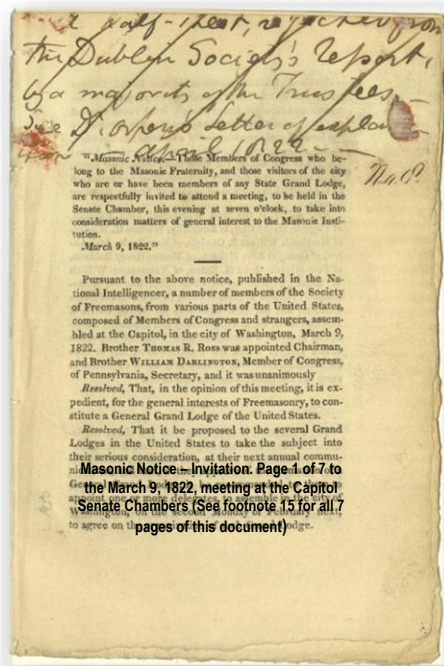 half-sheet, rejected from
the Dublin Society's Report,
by a majority of the Trustees
See D letter of explan
April 1822
No. 8.
"Masonic Notice.—Those Members of Congress who be-
long to the Masonic Fraternity, and those visitors of the city
who are or have been members of any State Grand Lodge,
are respectfully invited to attend a meeting, to be held in the
Senate Chamber, this evening at seven o'clock, to take into
consideration matters of general interest to the Masonic Insti-
tution.
March 9, 1822."
Pursuant to the above notice, published in the Na-
tional Intelligencer, a number of members of the Society
of Freemasons, from various parts of the United States,
composed of Members of Congress and strangers, assem-
bled at the Capitol, in the city of Washington, March 9,
1822. Brother THOMAS R. ROSS was appointed Chairman,
and Brother WILLIAM DARLINGTON, Member of Congress,
of Pennsylvania, Secretary, and it was unanimously
Resolved, That, in the opinion of this meeting, it is ex-
pedient, for the general interests of Freemasonry, to con-
stitute a General Grand Lodge of the United States.
Resolved, That it be proposed to the several Grand
Lodges in the United States to take the subject into
their serious consideration, at their next annual commu-
Masonic Notice – Invitation. Page 1 of 7 to
the March 9, 1822, meeting at the Capitol
appoint one or more delegates, to assemble in the city of
Senate Chambers (See footnote 15 for all 7
Washington, on the second Monday of February next,
pages of this document)
to agree on the